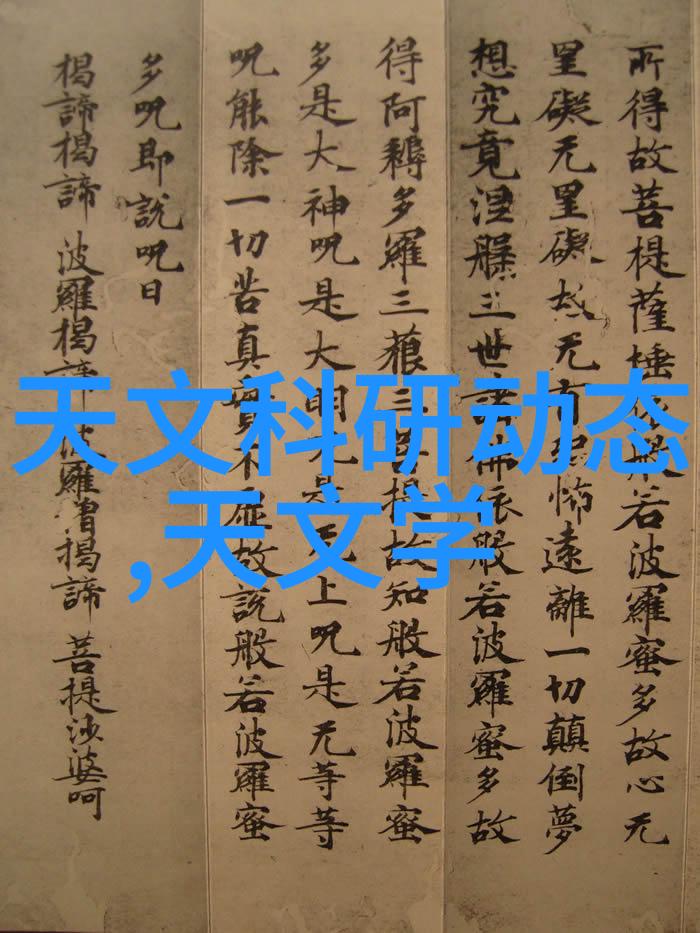 所得故菩提薩埵依般若波羅蜜多故心无
罣礙无罣礙故无有恐怖遠離一切顛倒夢
想究竟涅槃三世諸佛依般若波羅蜜多故
得阿耨多羅三藐三菩提故知般若波羅蜜
多是大神呪是大明呪是无上呪是无等等
呪能除一切苦真實不虛故說般若波羅蜜
多呪即說呪曰
揭諦揭諦 波羅揭諦 波羅僧揭諦 菩提沙婆呵
天文科研动态
,天文学